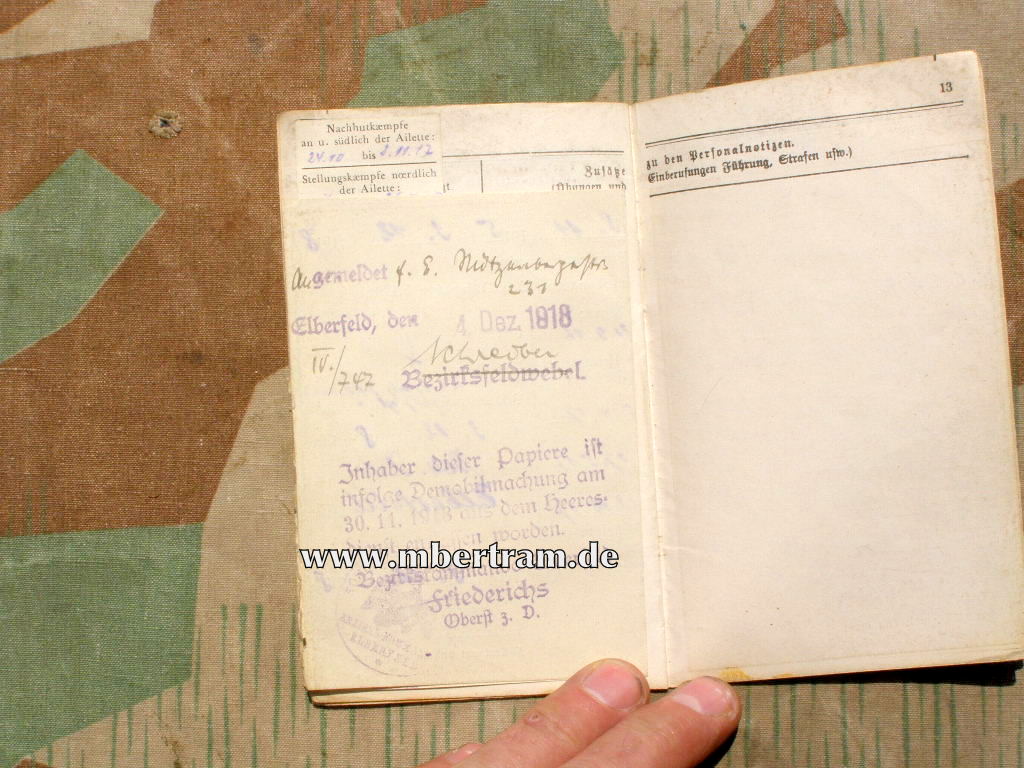 Nachhutkæmpfe
an u. südlich der Ailette:
24.10 bis 2.11.17
Stellungskæmpfe nœrdlich
der Ailette:
Zusätze
(Übungen und
Angemeldet f. E.
231
Elberfeld, den 4. Dez. 1918
IV./747 Schreiber
Bezirksfeldwebel.
Inhaber dieser Papiere ist
infolge Demobilmachung am
30. 11. 1918 aus dem Heeres-
worden.
www.mbertram.de
Friederichs
Oberst z. D.
13
zu den Personalnotizen.
Einberufungen Führung, Strafen usw.)